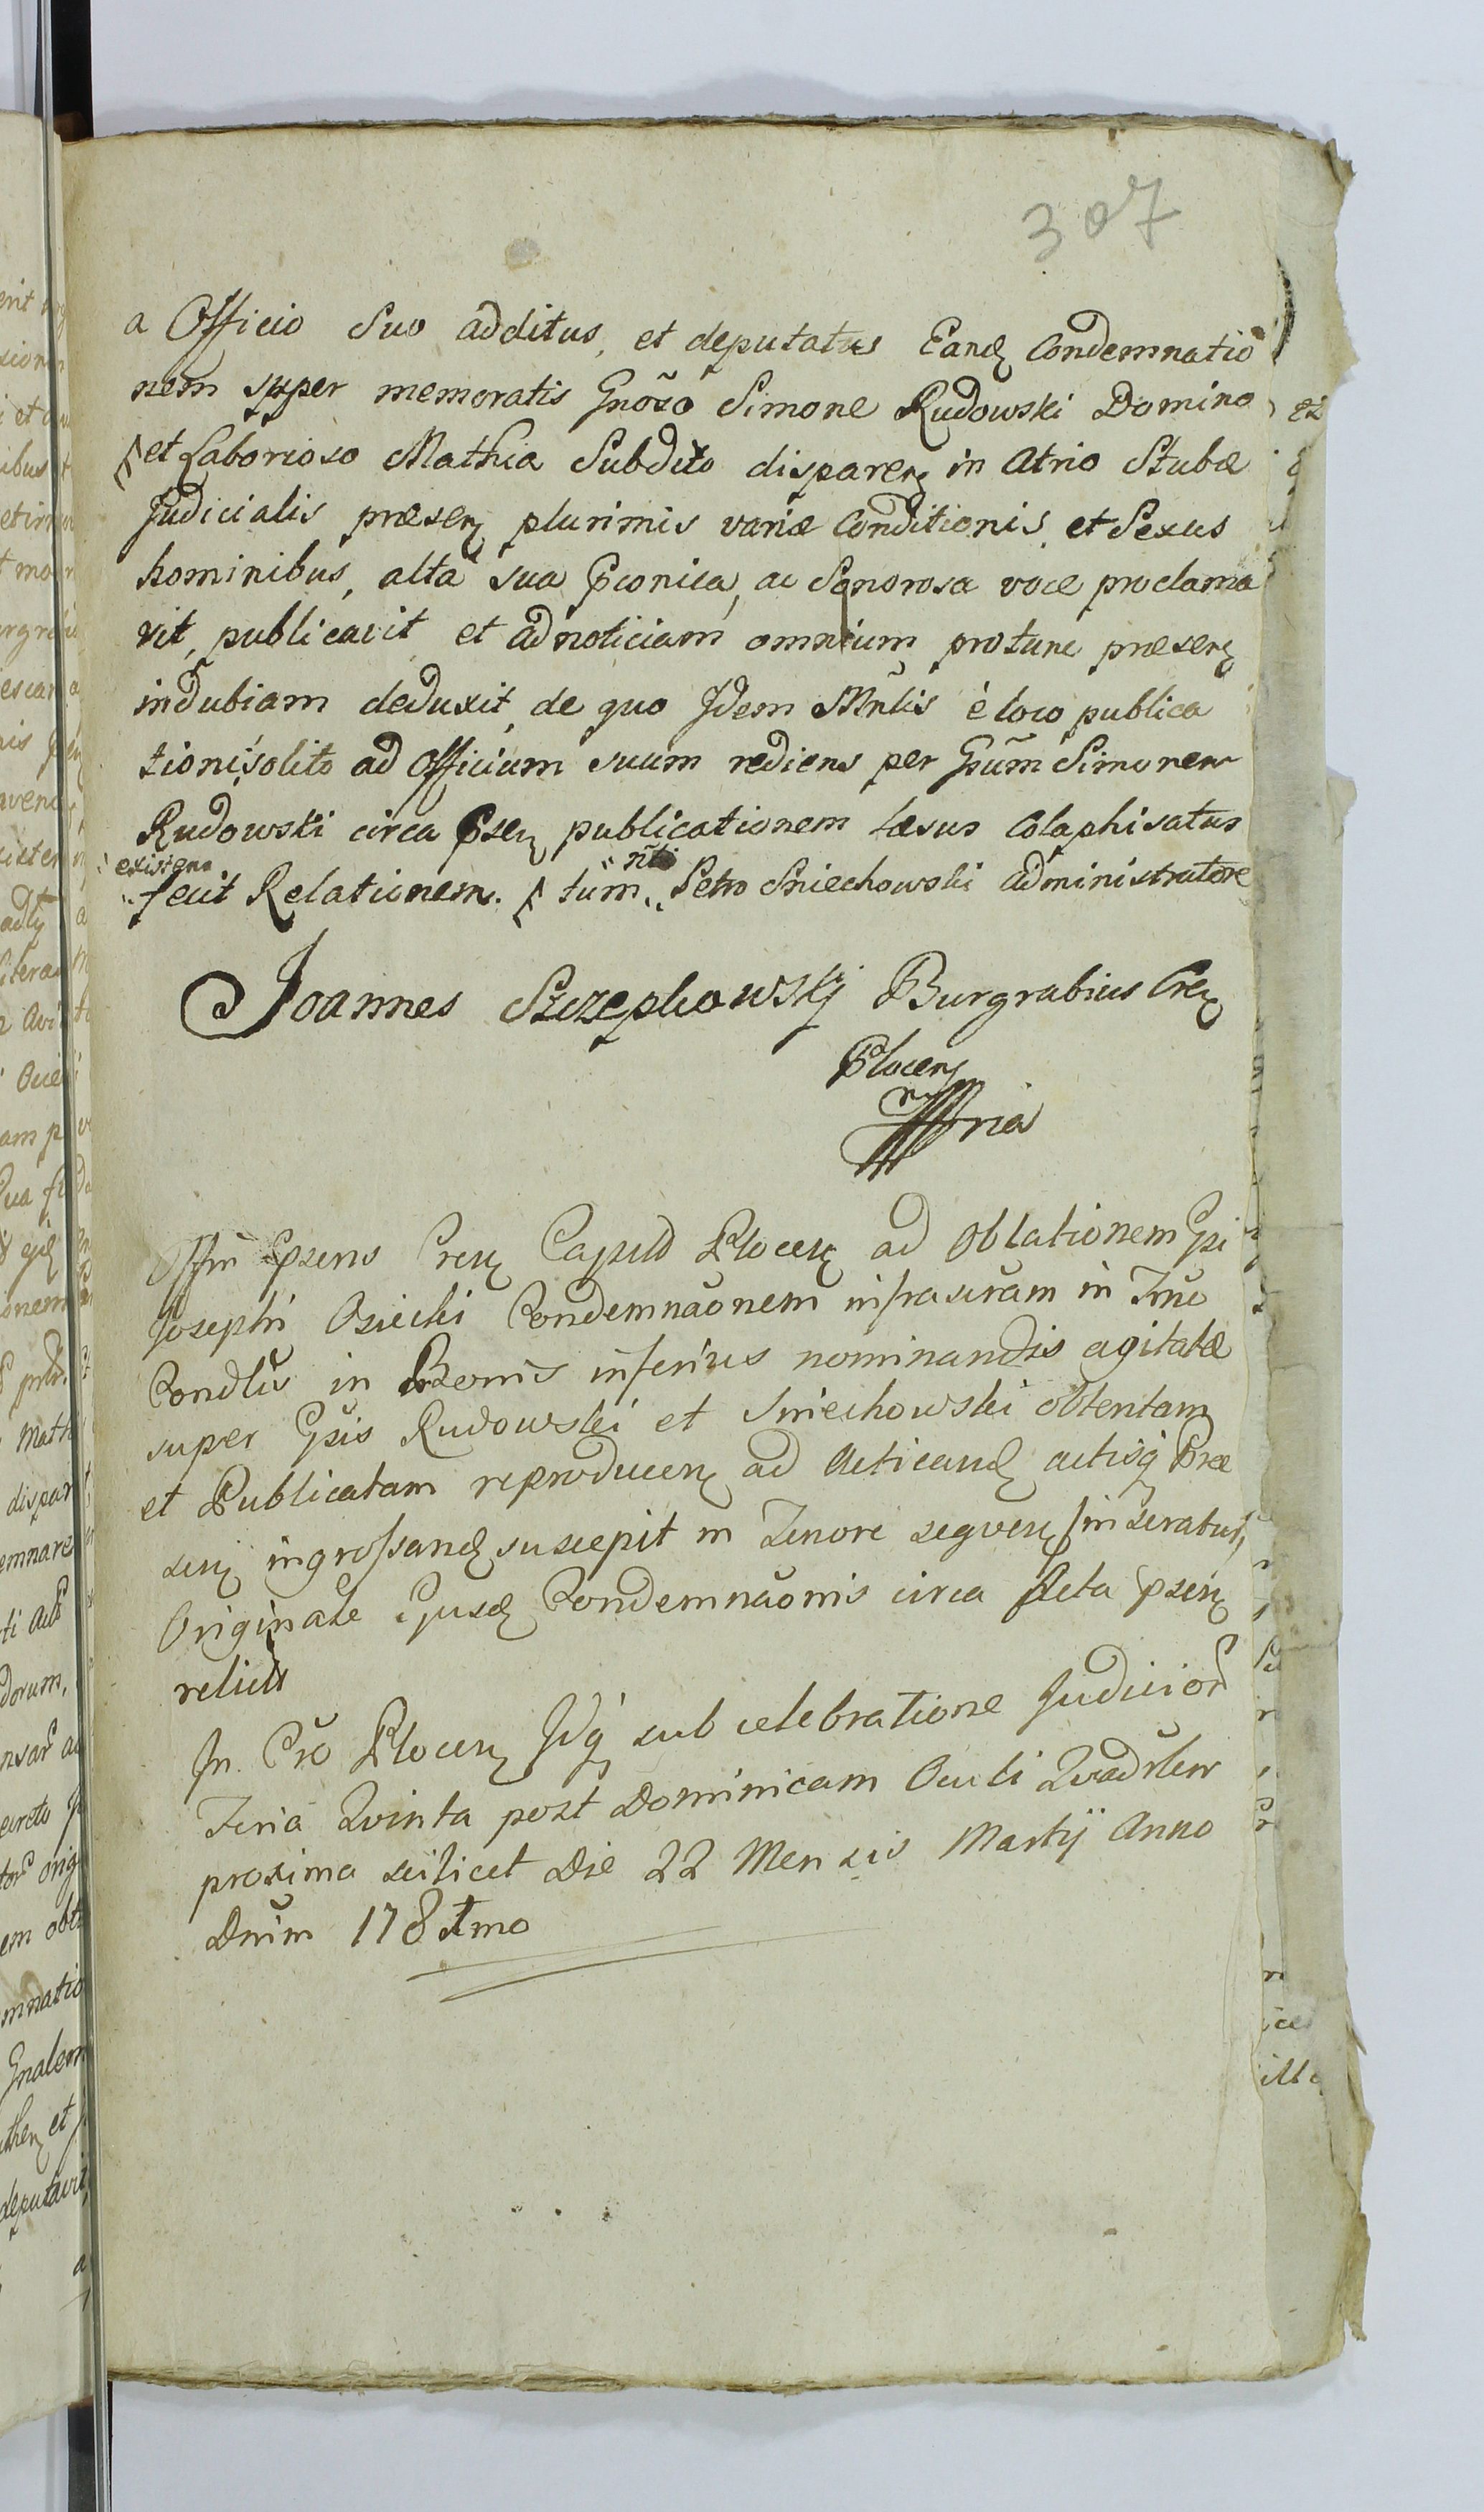 307
a Officio Suo additus, et deputatus Eand Condemnatio
nem super memoratis Gnõso Simone Rudowski Domino
et Laborioso Mathia Subdito disparen in Atrio Stubæ
Judicialis præsen plurimis variæ Conditionis et Sexus
hominibus, alta sua Pconica, ac Sonorosa voce proclama
vit, publicavit et ad noticiam omnium protunc præsen
indubiam deduxit, de quo Idem Mnlis è loco publica
tioni solito ad Officium suum rediens per Gsum Simonem
Rudowski circa Psen publicationem læsus Colaphisatus
existens
fecit Relationem. tum Petro Sniechowski administratore
Joannes Szczepkowskj Burgrabius Cren
Plocen
mpria
Offm Psens Cren Capitl Plocen ad Oblationem Gsi
Josephi Osiecki Condemnãonem infrascram in Tmo
Condlis in Bonis inferius nominandis agitatæ
super Gsis Rudowski et Sniechowski obtentam
et Publicatam reproducen ad Acticand actisq Præ
sen ingrossand suscepit in Tenore sequen inseratur
Originale Ejusd Condemnãonis circa Acta Psen
relicti
In Cro Plocen Idq sub celebratione Judicior
Feria Quinta post Dominicam Oculi Quadrlem
proxima scilicet Die 22 Mensis Martij Anno
Dnim 1781mo